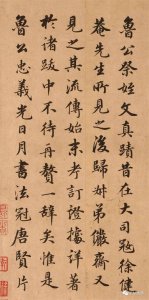 魯公祭姪文真蹟昔在大司寇徐健
菴先生所見之後歸舛弟儼齋又
見之其流傳始末考訂證據詳著
於諸跋中不待再贅一辭矣惟是
魯公忠義光日月書法冠唐賢片